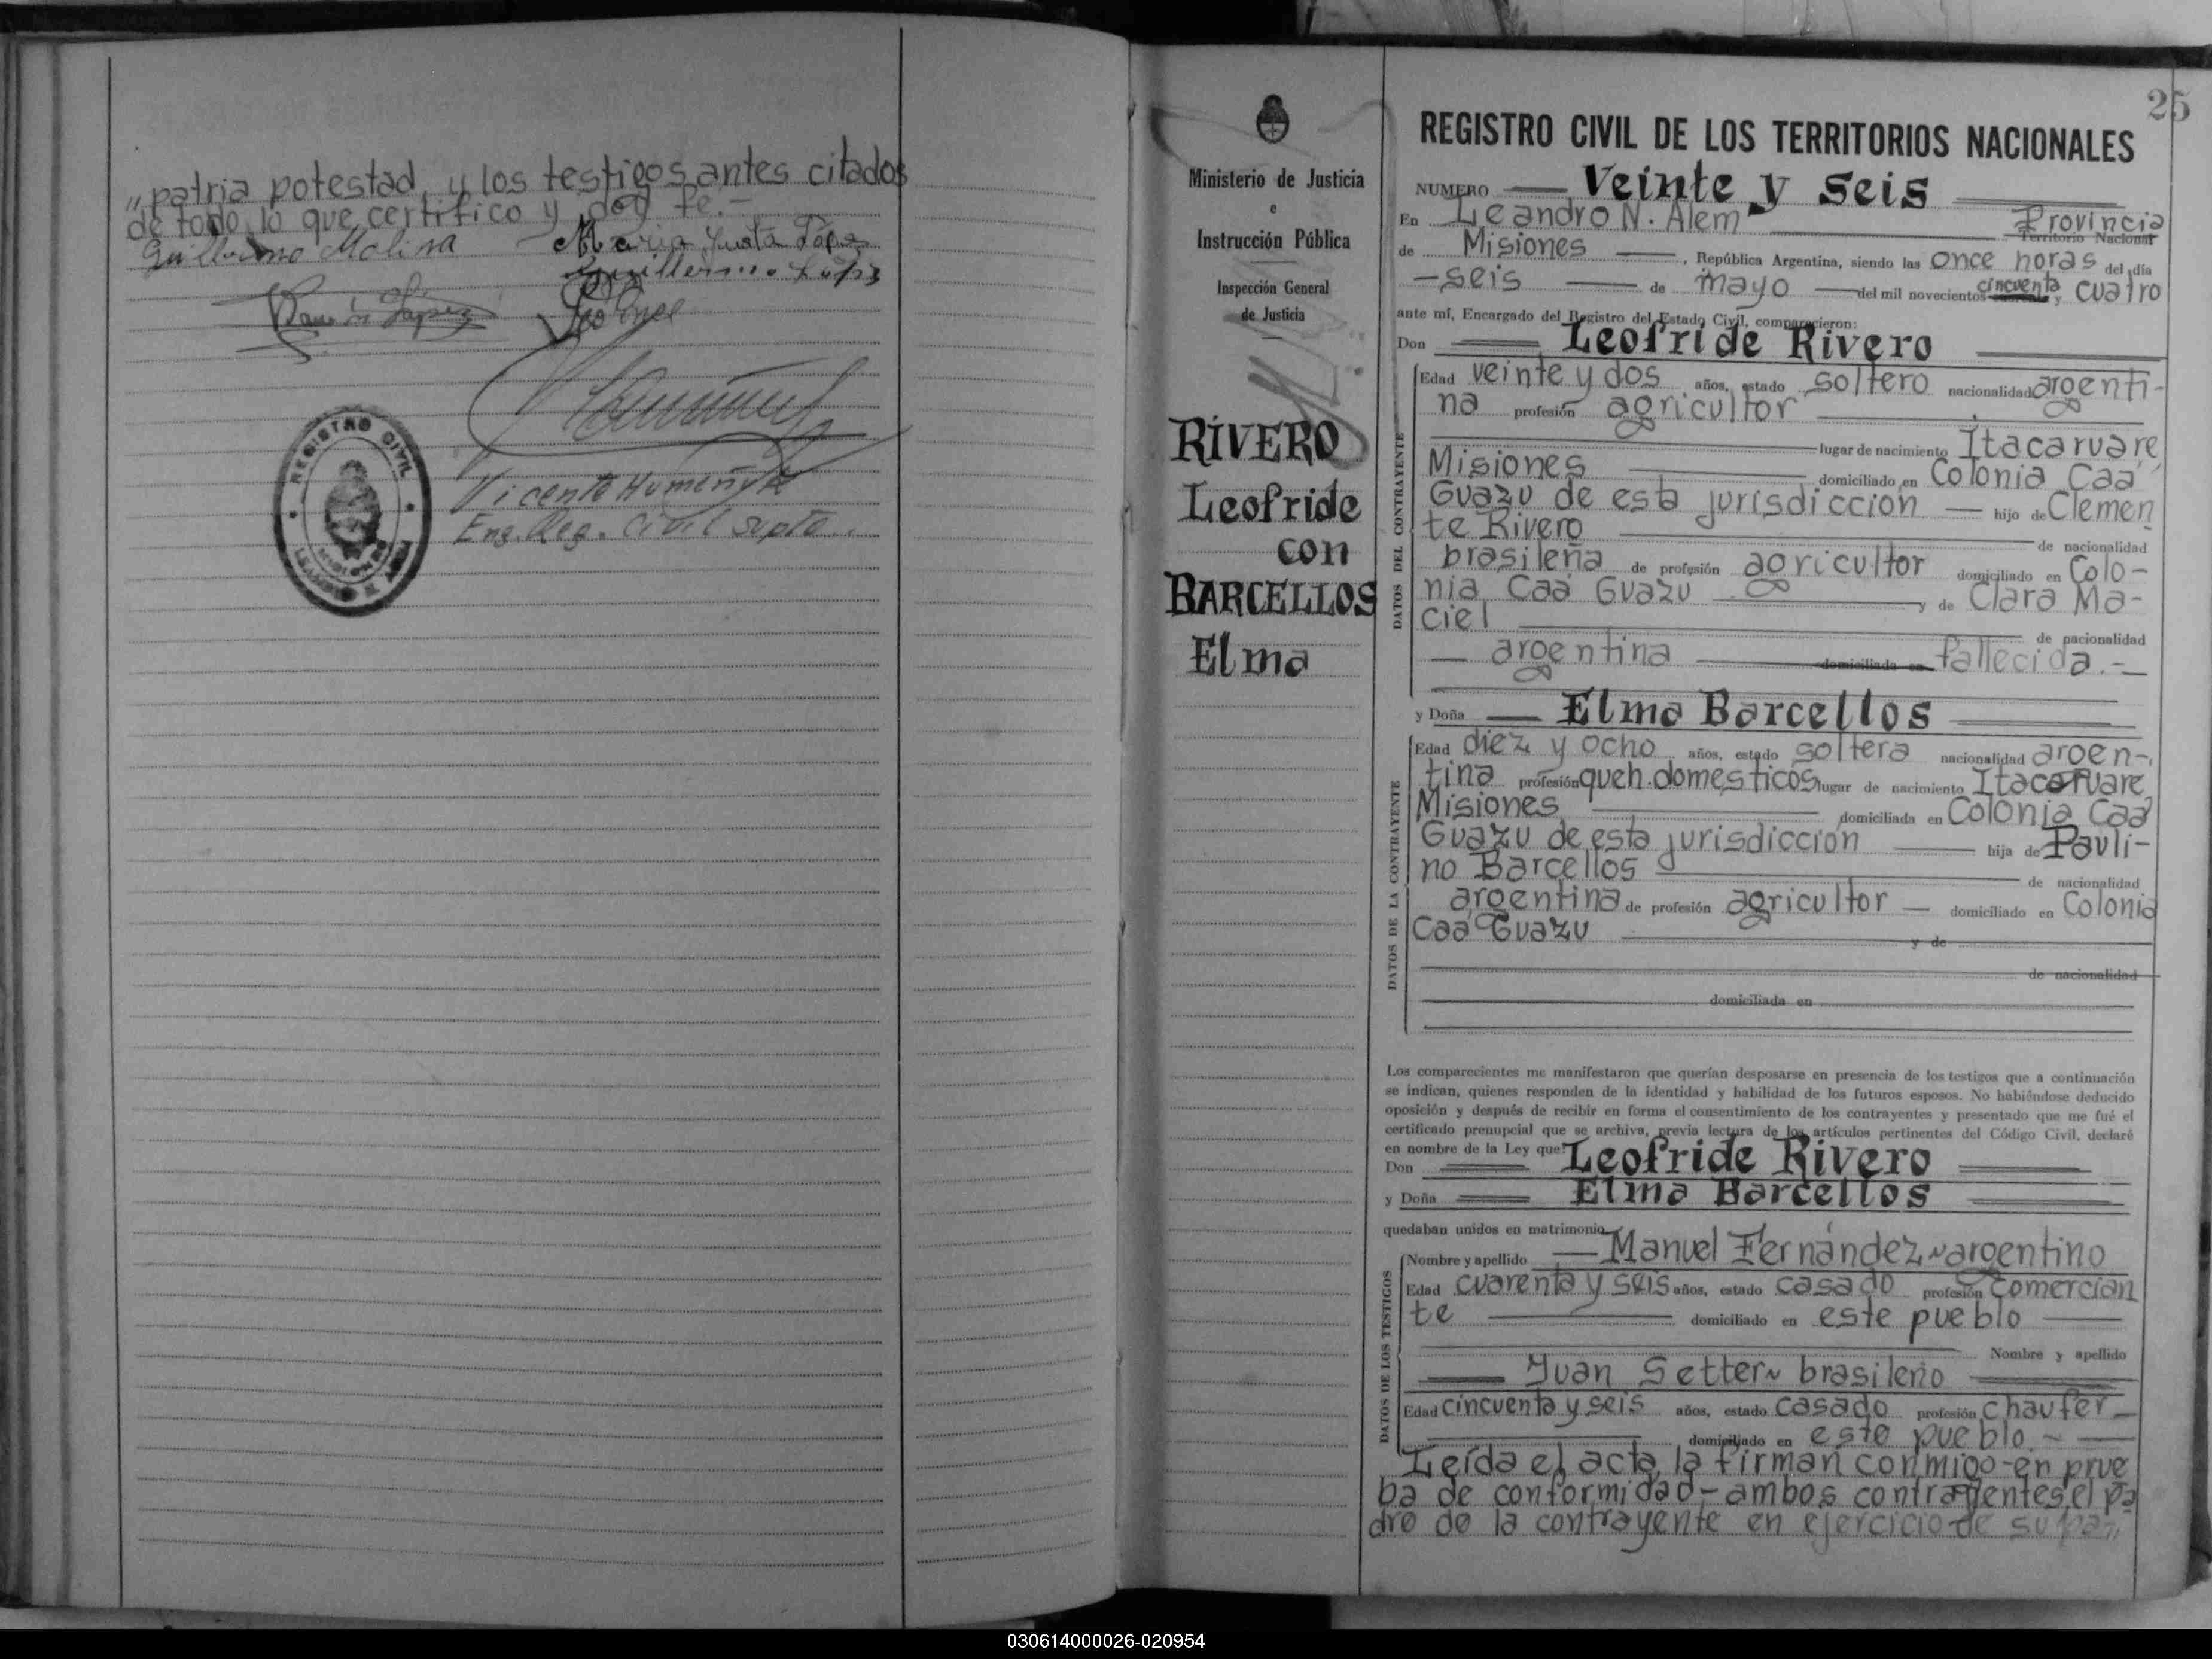 „patria potestad, y los testigos antes citados
de todo lo que certifico y doy fe.-
Guillermo Molina
Maria Justa López
Guillermo López
Ramón López
Vicente Humeñuk
Enc. Reg. Civil supte.
REGISTRO CIVIL
MISIONES
LEANDRO N. ALEM
25
Ministerio de Justicia
e
Instrucción Pública
Inspección General
de Justicia
RIVERO
Leofride
con
BARCELLOS
Elma
REGISTRO CIVIL DE LOS TERRITORIOS NACIONALES
NUMERO Veinte y seis
En Leandro N. Alem Provincia
Territorio Nacional
de Misiones, República Argentina, siendo las once horas del día
-seis de mayo del mil novecientos cincuenta y cuatro
ante mí, Encargado del Registro del Estado Civil, comparecieron:
Don Leofride Rivero
DATOS DEL CONTRAYENTE
Edad veinte y dos años, estado soltero nacionalidad argenti-
na profesión agricultor
lugar de nacimiento Itacaruare
Misiones domiciliado en Colonia Caá
Guazu de esta jurisdiccion hijo de Clemen
te Rivero de nacionalidad
brasileña de profesión agricultor domiciliado en Colo-
nia Caá Guazu y de Clara Ma-
ciel de nacionalidad
argentina domiciliada en fallecida.-
y Doña Elma Barcellos
DATOS DE LA CONTRAYENTE
Edad diez y ocho años, estado soltera nacionalidad argen-
tina profesión queh. domésticos lugar de nacimiento Itacaruare
Misiones domiciliada en Colonia Caá
Guazu de esta jurisdiccion hija de Pauli-
no Barcellos de nacionalidad
argentina de profesión agricultor domiciliado en Colonia
Caá Guazu y de
de nacionalidad
domiciliada en
Los comparecientes me manifestaron que querían desposarse en presencia de los testigos que a continuación
se indican, quienes responden de la identidad y habilidad de los futuros esposos. No habiéndose deducido
oposición y después de recibir en forma el consentimiento de los contrayentes y presentado que me fué el
certificado prenupcial que se archiva, previa lectura de los artículos pertinentes del Código Civil, declaré
en nombre de la Ley que:
Don Leofride Rivero
y Doña Elma Barcellos
quedaban unidos en matrimonio
DATOS DE LOS TESTIGOS
Nombre y apellido Manuel Fernández~argentino
Edad cuarenta y seis años, estado casado profesión comercian
te domiciliado en este pueblo
Nombre y apellido
Juan Setter~ brasileño
Edad cincuenta y seis años, estado casado profesión chaufer
domiciliado en este pueblo.~
Leída el acta, la firman conmigo-en prue
ba de conformidad-ambos contrayentes, el pa
dre de la contrayente en ejercicio de su
030614000026-020954